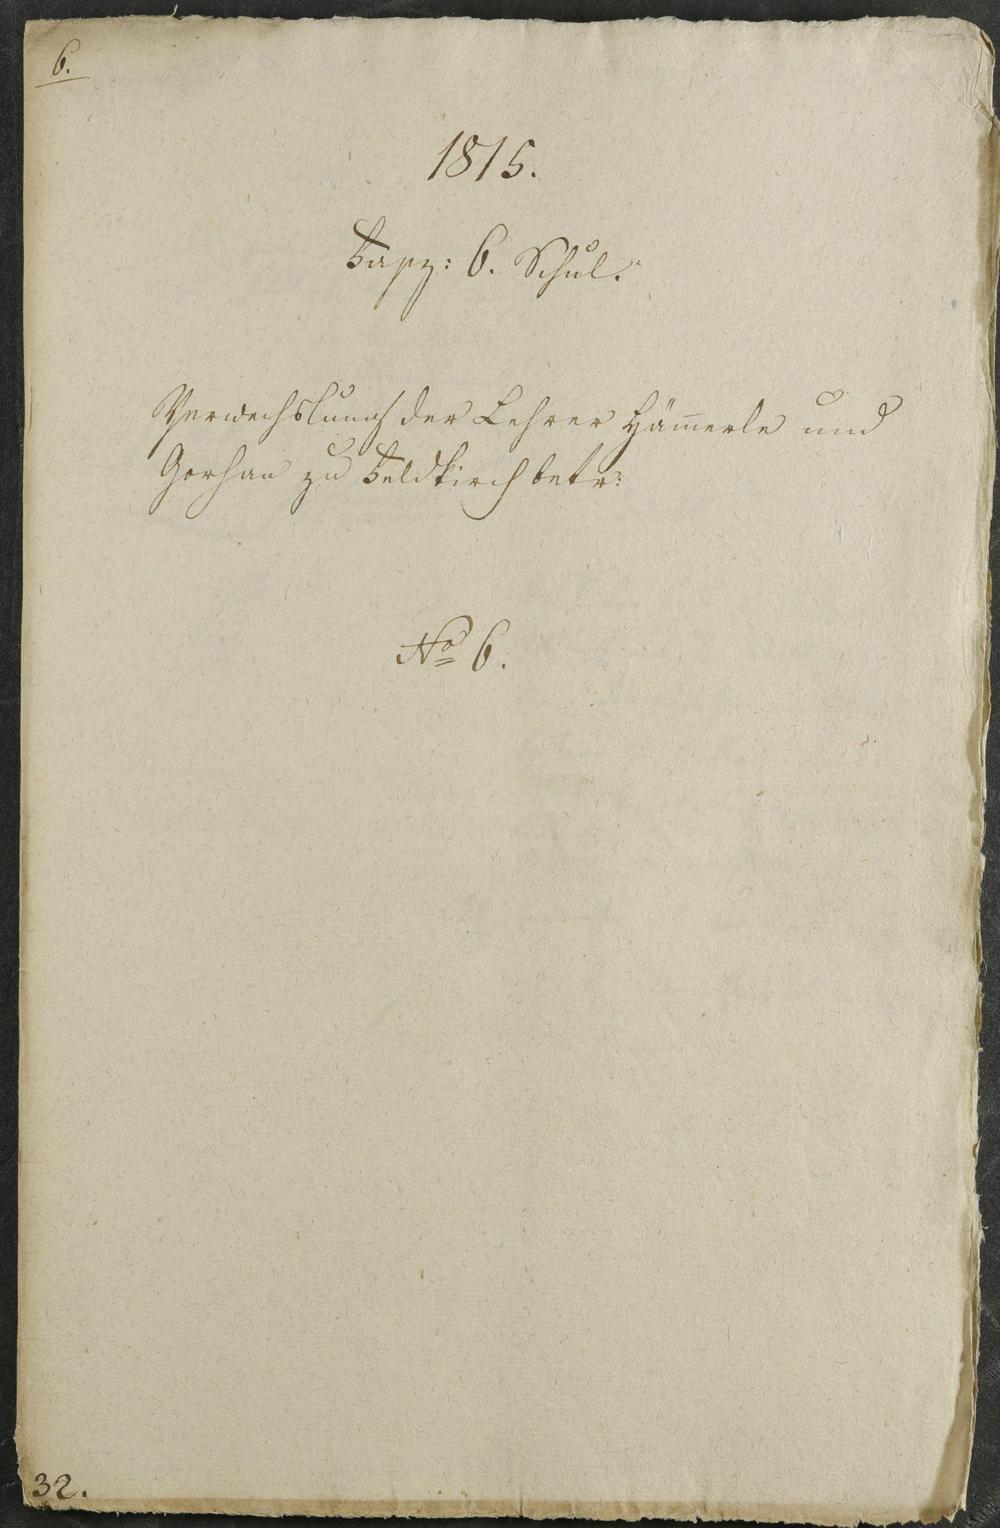 6.
1815.
Fasz: 6. Schul.
Verwechslung der Lehrer Häm̄erle und
Gorhan zu Feldkirch betr:
No 6.
32.